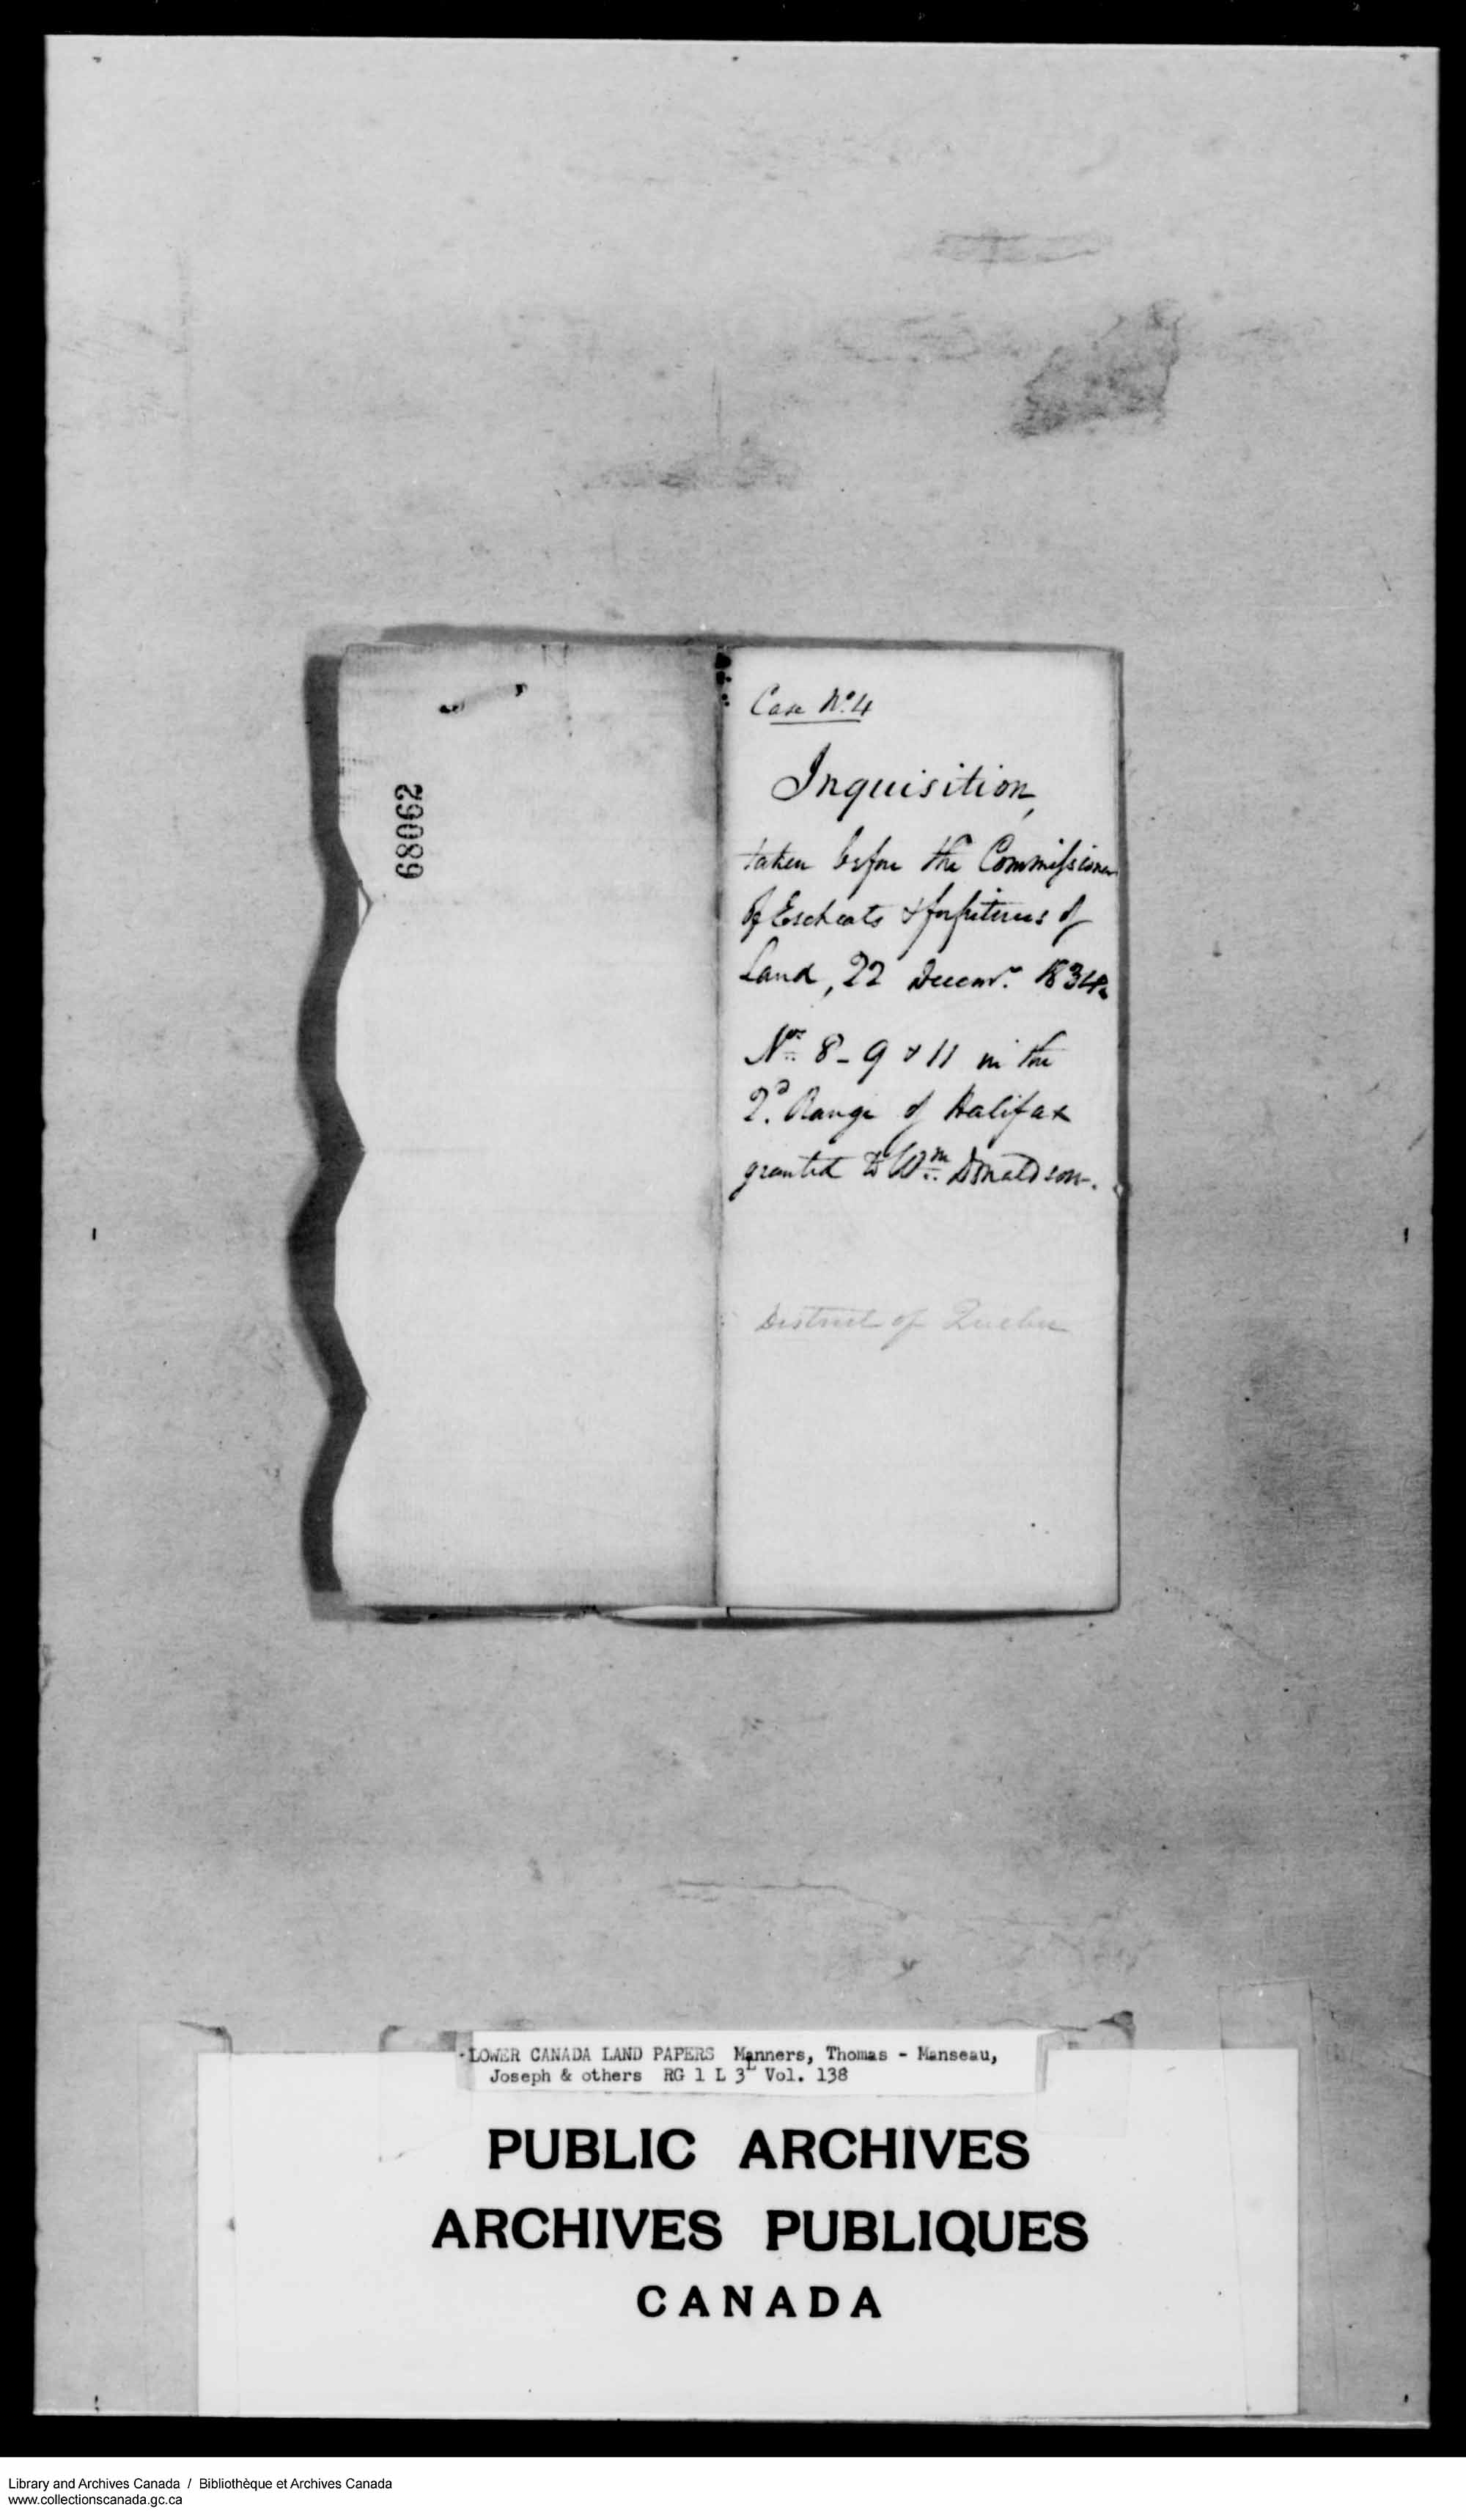 68062
Case No. 4
Inquisition,
taken before the Commissioner
Of Escheats & forfeitures of
Land, 22 Decemr. 1834.
Nos. 8 - 9 & 11 in the
2d. Range of Halifax
granted to Wm. Donaldson.
District of Quebec
LOWER CANADA LAND PAPERS Manners, Thomas - Manseau,
Joseph & others RG 1 L 3L Vol. 138
PUBLIC ARCHIVES
ARCHIVES PUBLIQUES
CANADA
Library and Archives Canada / Bibliothèque et Archives Canada
www.collectionscanada.gc.ca